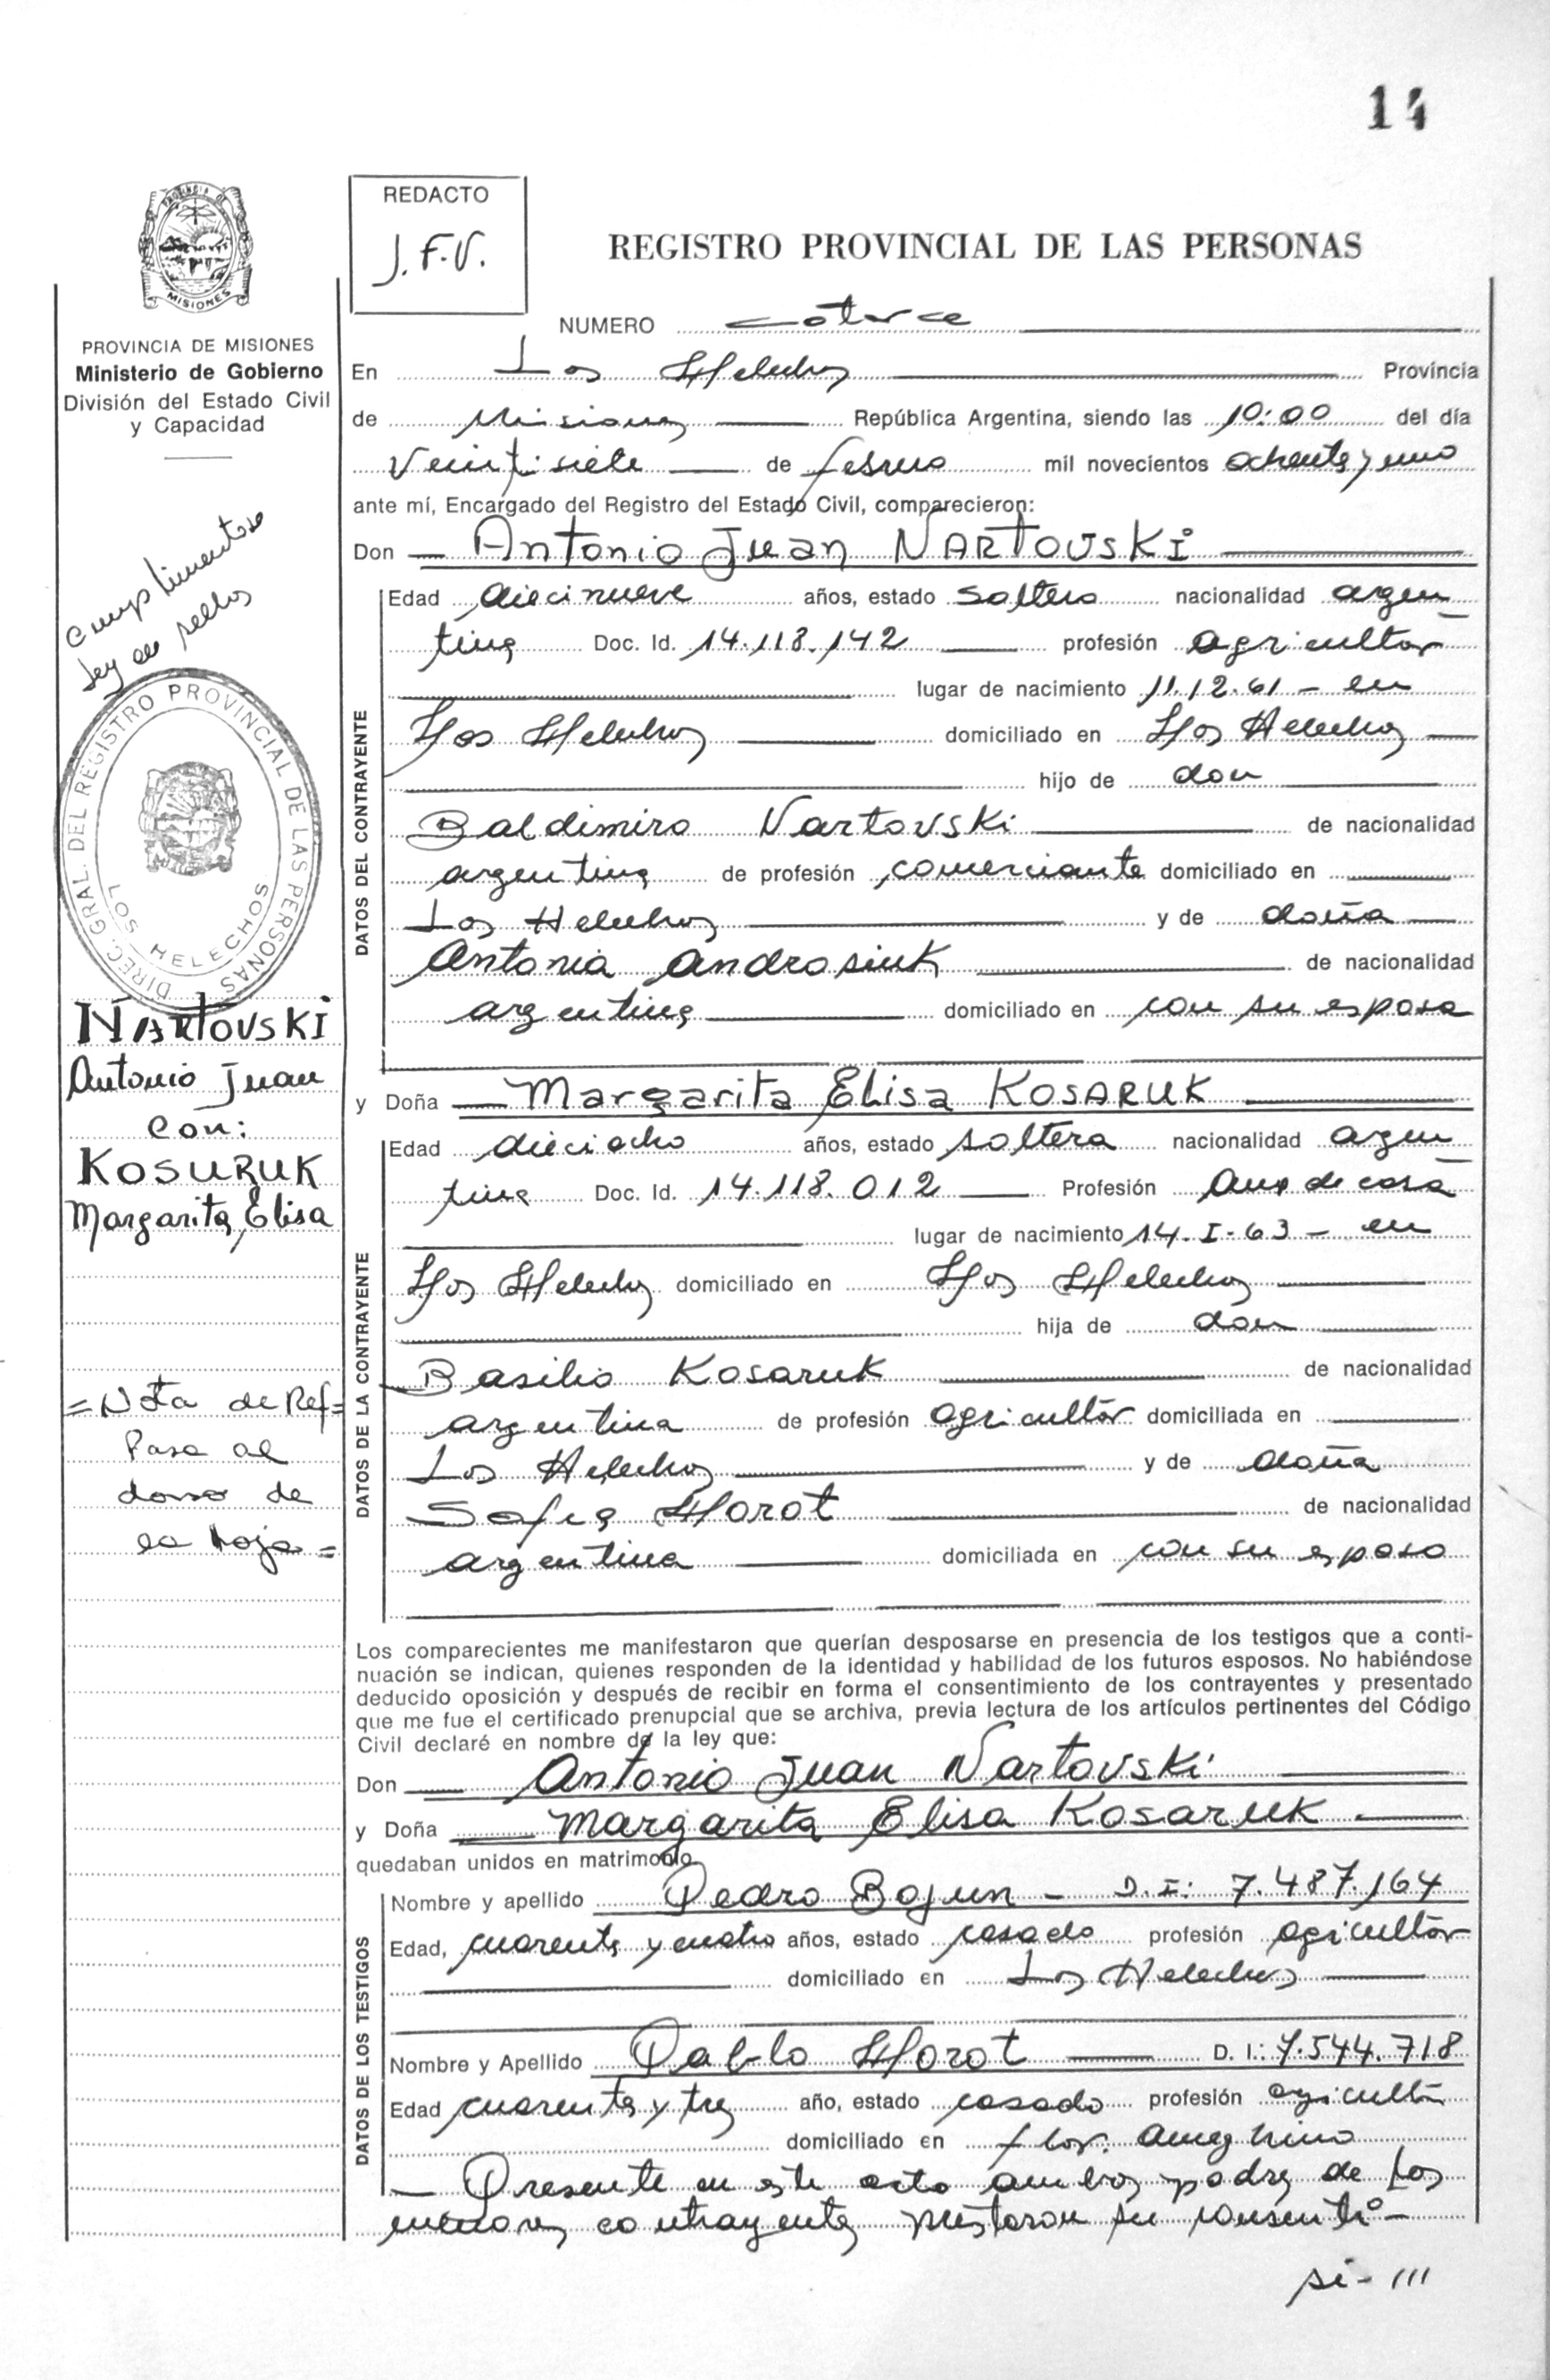 14
REDACTO
J.F.V.
REGISTRO PROVINCIAL DE LAS PERSONAS
PROVINCIA DE MISIONES
Ministerio de Gobierno
División del Estado Civil
y Capacidad
NUMERO catorce
En Los Helechos Provincia
de Misiones República Argentina, siendo las 10:00 del día
Veintisiete de febrero mil novecientos ochenta y uno
ante mí, Encargado del Registro del Estado Civil, comparecieron:
Don Antonio Juan NARTOVSKI
Edad diecinueve años, estado soltero nacionalidad argen
tina Doc. Id. 14.118.142 profesión agricultor
lugar de nacimiento 11.12.61 - en
Los Helechos domiciliado en Los Helechos
hijo de don
Baldimiro Nartovski de nacionalidad
argentina de profesión comerciante domiciliado en
Los Helechos y de doña
Antonia Androsiuk de nacionalidad
argentina domiciliado en con su esposo
y Doña Margarita Elisa KOSARUK
Edad dieciocho años, estado soltera nacionalidad argen
tina Doc. Id. 14.118.012 Profesión Ama de casa
lugar de nacimiento 14-I-63 - en
Los Helechos domiciliado en Los Helechos
hija de don
Basilio Kosaruk de nacionalidad
argentina de profesión agricultor domiciliada en
Los Helechos y de doña
Sofia Horot de nacionalidad
argentina domiciliada en con su esposo
Los comparecientes me manifestaron que querían desposarse en presencia de los testigos que a conti-
nuación se indican, quienes responden de la identidad y habilidad de los futuros esposos. No habiéndose
deducido oposición y después de recibir en forma el consentimiento de los contrayentes y presentado
que me fue el certificado prenupcial que se archiva, previa lectura de los artículos pertinentes del Código
Civil declaré en nombre de la ley que:
Don Antonio Juan Nartovski
y Doña Margarita Elisa Kosaruk
quedaban unidos en matrimonio
Nombre y apellido Pedro Bojun - D.I: 7.487.164
Edad, cuarenta y cuatro años, estado casado profesión agricultor
domiciliado en Los Helechos
Nombre y Apellido Pablo Horot D. I.: 7.544.718
Edad cuarenta y tres año, estado casado profesión agricultor
domiciliado en flor. ameghino
- Presente en este acto ambos padres de los
menores contrayentes prestaron su consenti-
si- ///
DATOS DEL CONTRAYENTE
DATOS DE LA CONTRAYENTE
DATOS DE LOS TESTIGOS
Cumplimentose
ley de sellos
DIREC. GRAL. DEL REGISTRO PROVINCIAL DE LAS PERSONAS
LOS HELECHOS
NARTOVSKI
Antonio Juan
Con:
KOSURUK
Margarita Elisa
= Nota de Ref=
Pasa al
dorso de
la hoja =
PROVINCIA DE
MISIONES